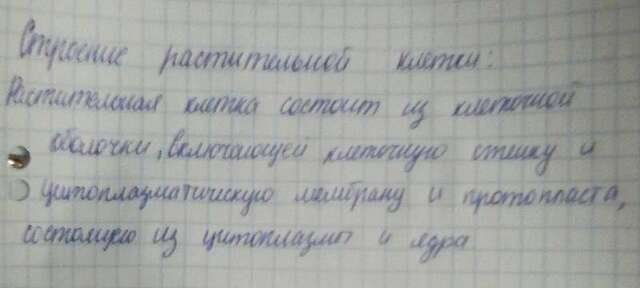 Строение растительной клетки:
Растительная клетка состоит из клеточной
оболочки, включающей клеточную стенку и
цитоплазматическую мембрану и протопласта,
состоящую из цитоплазмы и ядра